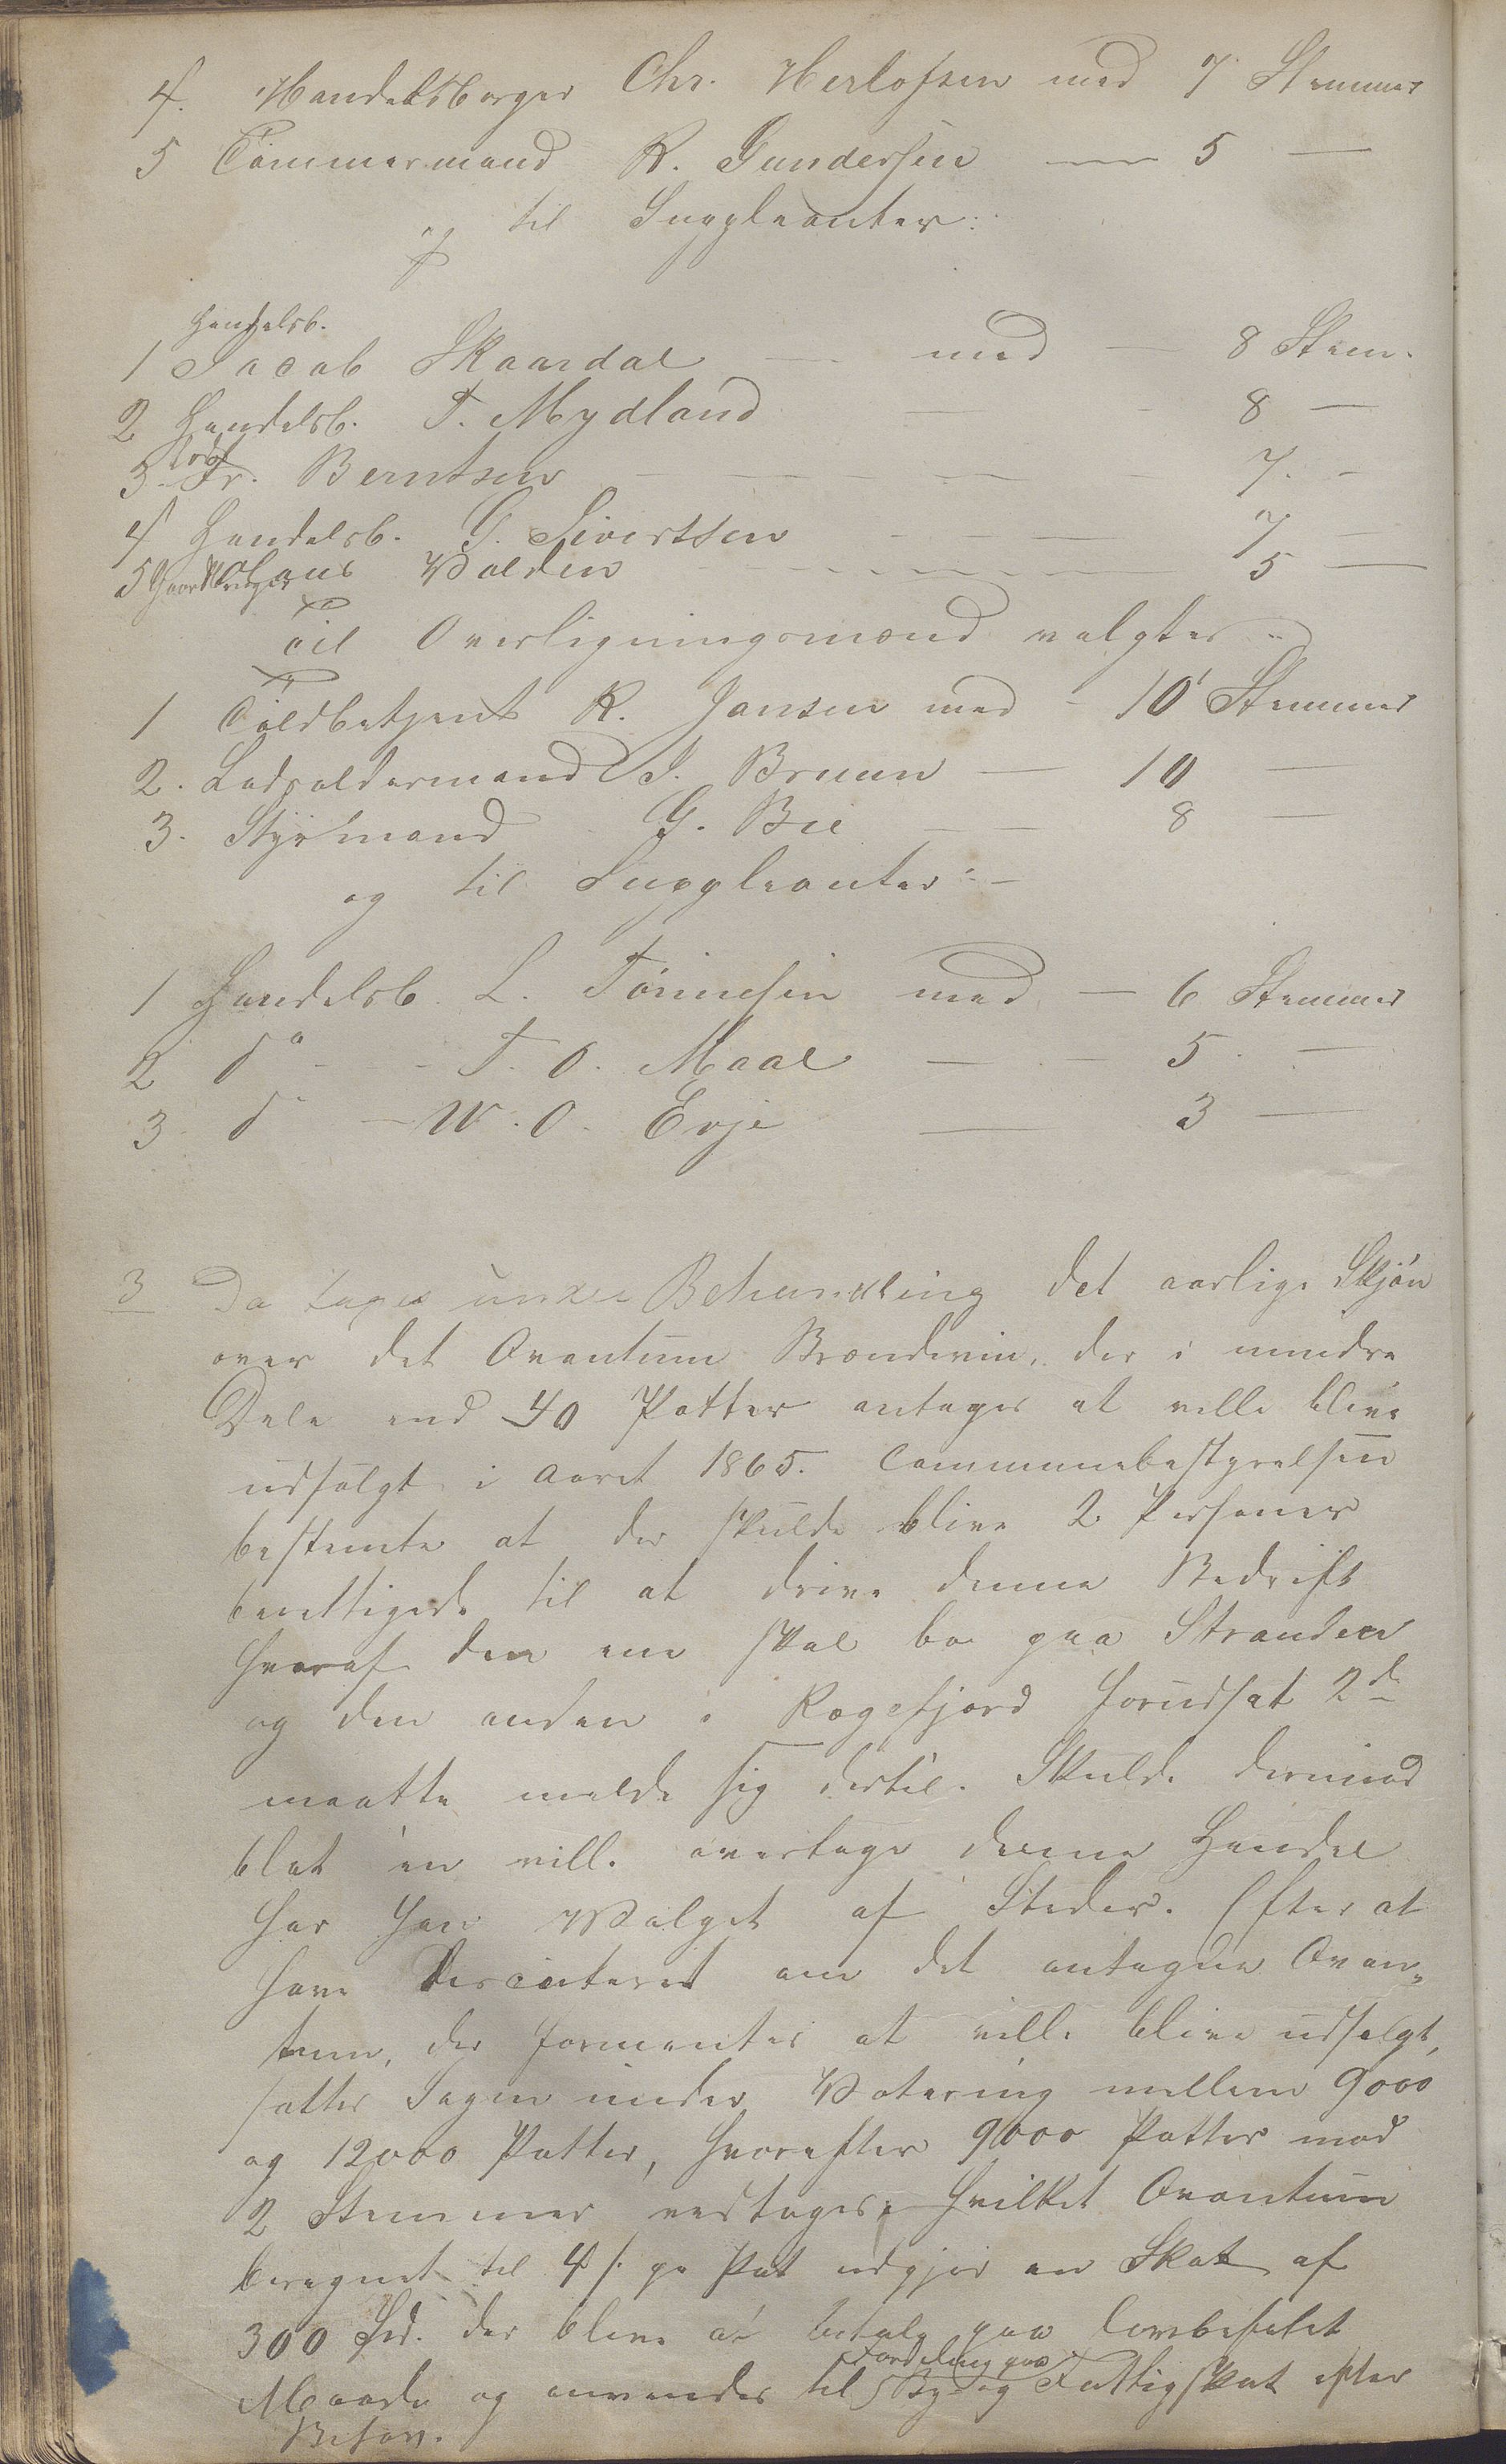 4. Handelsborger Chr. Herlofsen med 7 Stemmer
5 Tömmermand R. Gundersen — 5 —
og til Suppleanter:
Handelsb.
1 Jacob Skaardal — med — 8 Stem.
2 Handelsb. T. Mydland — 8 —
Lods
3. Fr. Berntsen — 7. —
4 Handelsb. G. Sivertsen — 7 —
5 Gaardbruger Claus Valden — 5 —
Til Overligningsmænd valgtes:
1 Toldbetjent R. Jansen med - 10 Stemmer
2. Lodsoldermand J. Bruun — 10 —
3. Styrmand G. Bie — 8 —
og til Suppleanter:-
1 Handelsb. L. Tönnesen med — 6 Stemmer
2 do - - T. O. Maal — - 5. —
3 do - W. O. Evje — 3 —
3 Da toges under Behandling det aarlige Skjön
over det Qvantum Brændeviin, der i mindre
Dele end 40 Potter antages at ville blive
udsolgt i Aaret 1865. Communebestyrelsen
bestemte at der skulde blive 2 Personer
berettigede til at drive denne Bedrift
hvoraf den ene skal bo paa Stranden
og den anden i Rægefjord forudsat 2de
maatte melde sig dertil. Skulde derimod
blot en ville overtage denne Handel
har han Valget af Steder. Efter at
have discuteret om det antagne Qvan-
tum, der formentes at ville blive udsolgt,
sattes Sagen under Votering mellem 9000
og 12000 Potter, hvorefter 9000 Potter mod
2 Stemmer vedtoges, hvilket Qvantum
beregnet til 4 s. pr Pot udgjør en Skat af
300 Spd. der blive at betale paa lovbefalet
Fordeling paa
Maade og anvendes til By- og Fattigskat efter
Behov.